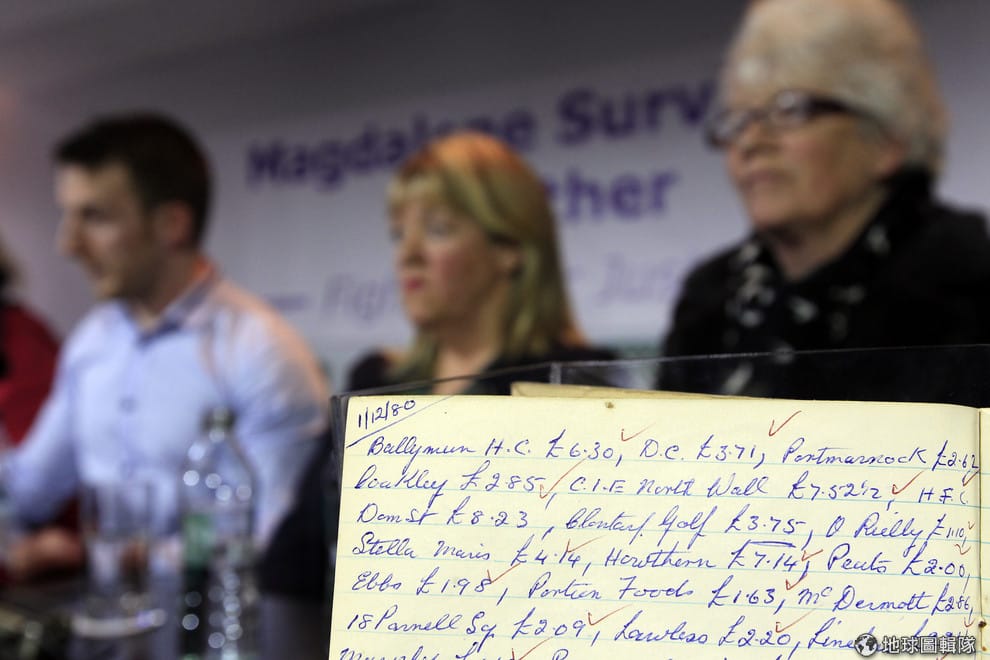 Magdalene Surv
ther
1/12/80
Ballymun H.C. £6.30, D.C. £3.71, Portmarnock £2.62
Coakley £2.85, C.I.E North Wall £7.52½, H.F.C.
Dom St £8.23, Clontarf Golf £3.75, O Reilly £1.10,
Stella Maris £4.14, Hawthorn £7.14, Peats £2.00,
Ebbs £1.98, Portion Foods £1.63, McDermott £2.86,
18 Parnell Sq £2.09, Lawless £2.20,
地球圖輯隊